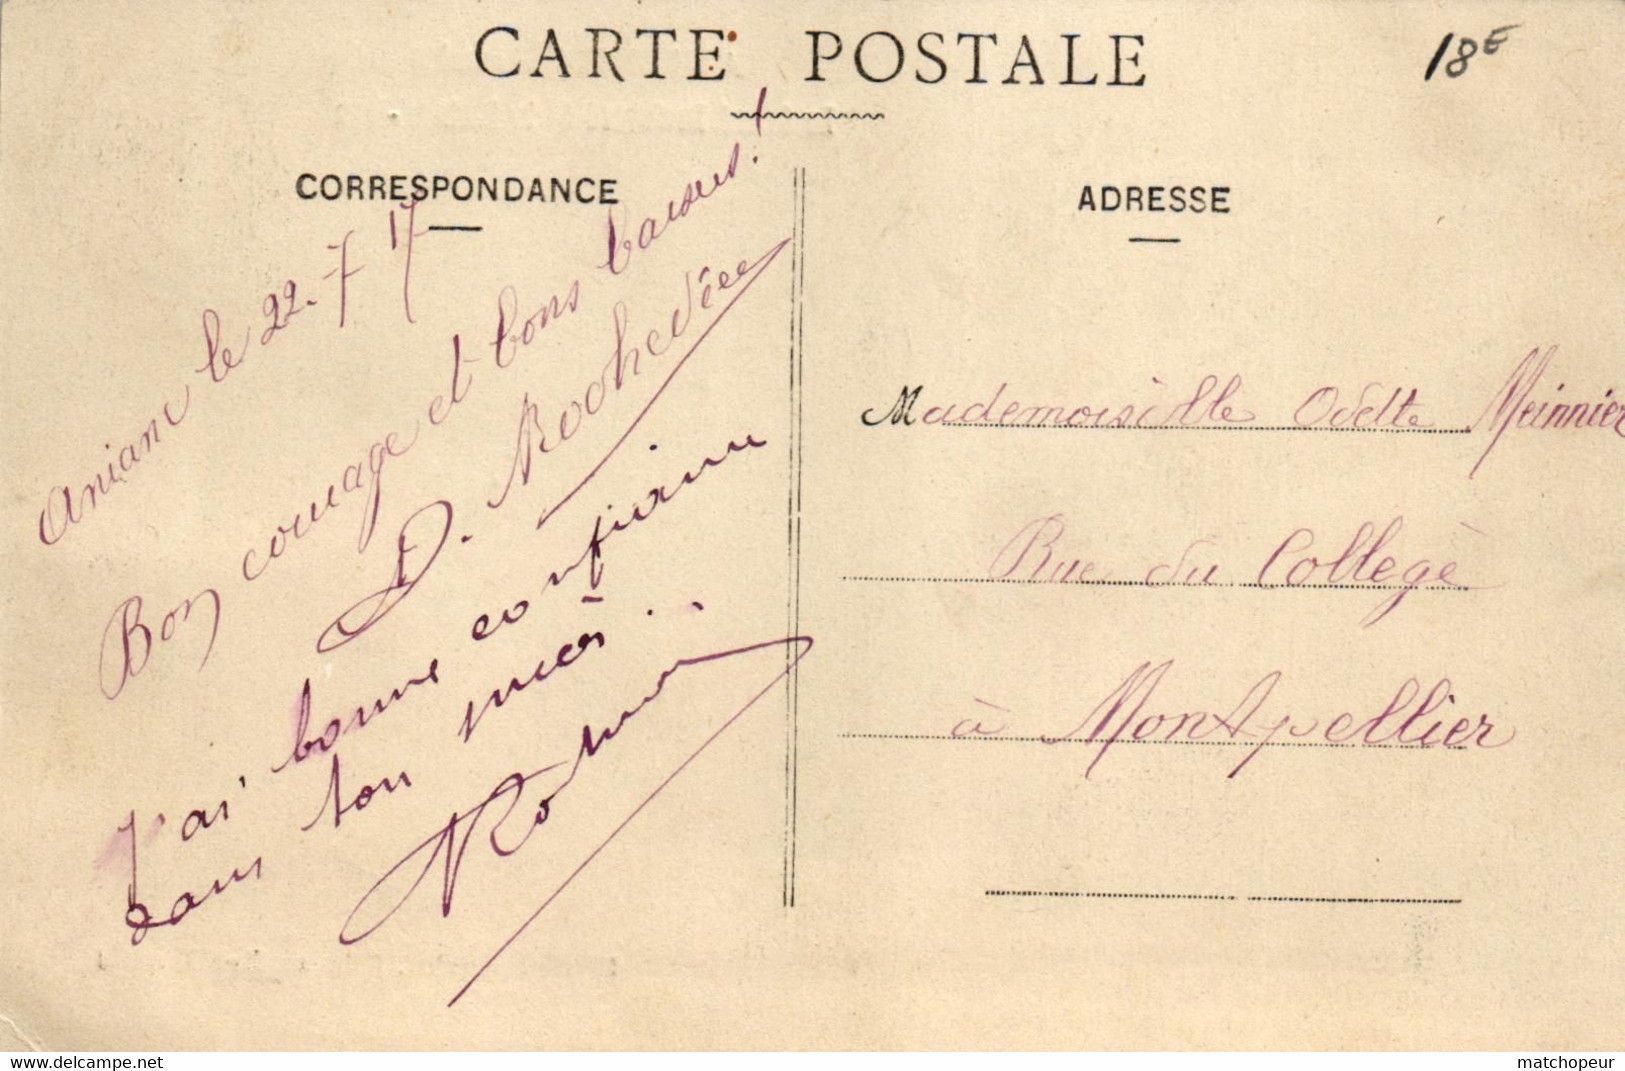 CARTE POSTALE
18€
CORRESPONDANCE
ADRESSE
Aniane le 22-7 17
Bon courage et bons baisers!
D. Rochevée
J'ai bonne confiance
dans ton succès...
Mademoiselle Odette Meinnier
Rue du Collège
à Montpellier
matchopeur